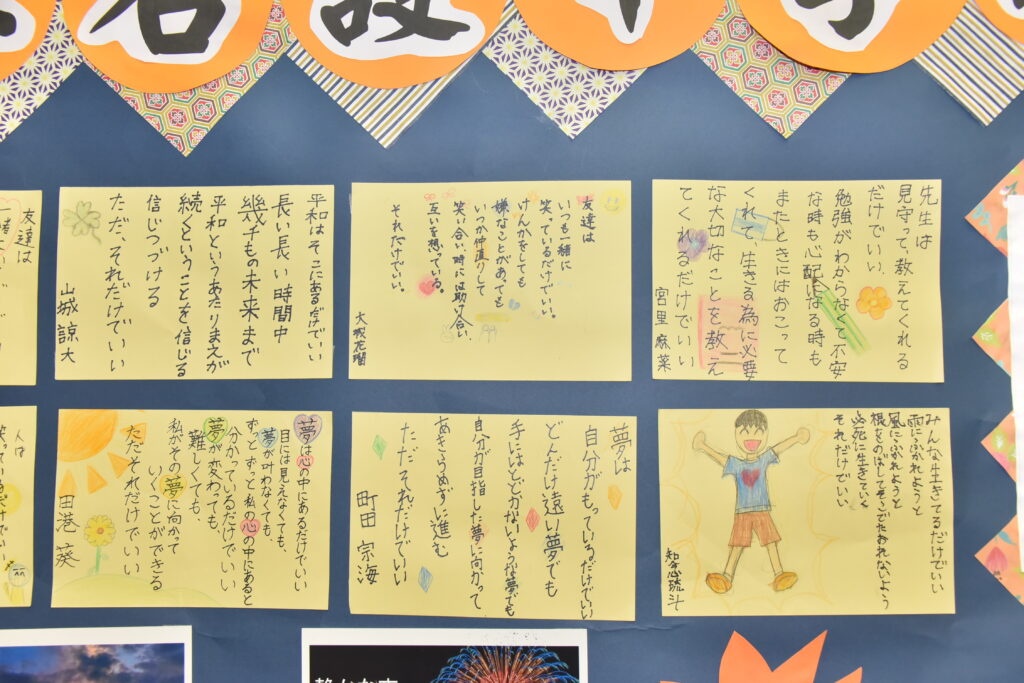 設
先生は
見守って、教えてくれる
だけでいい、
勉強がわからなくて不安
な時も心配になる時も
またときにはおこって
くれて、生きる為に必要
な大切なことを教え
てくれるだけでいい
宮里麻菜
友達は
いつも一緒に
笑っているだけでいい。
けんかをしても
嫌なことがあっても
いつか仲直りして
笑い合い、時には助け合い、
互いを想っている。
それだけでいい。
大城花
平和はそこにあるだけでいい
長い長い時間中
幾千もの未来まで
平和というあたりまえが
続くということを信じる
信じつづける
ただ、それだけでいい
山城諒大
友達は
みんな生きてるだけでいい
雨にふかれようと
風にふかれようと
根をのばして たおれないよう
必死に生きていく
それだけでいい
知念琉斗
夢は
自分がもっているだけでいい
どんだけ遠い夢でも
手にはとどかないような夢でも
自分が目指した夢に向かって
あきらめずに進む
ただそれだけでいい
町田宗海
夢は心の中にあるだけでいい
目には見えなくても、
夢が叶わなくても、
ずっとずっと私の心の中にあると
分かっているだけでいい
夢が変わっても、
難しくても、
私がその夢に向かって
いくことができる
ただそれだけでいい
田港葵
人は